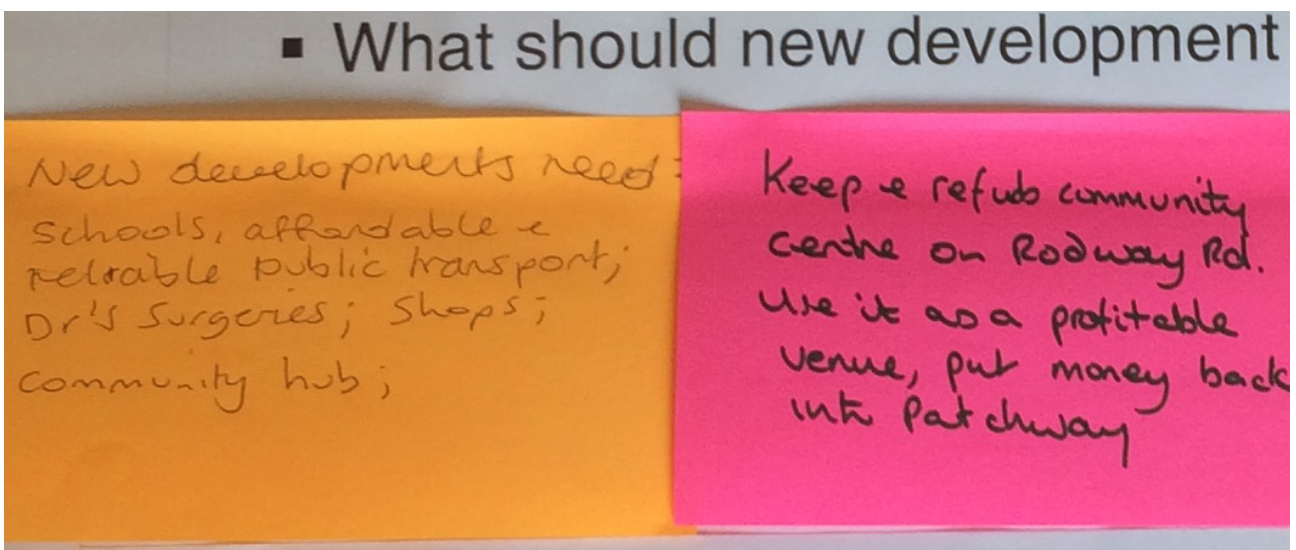 ▪ What should new development
New developments need:
schools, affordable e
reliable public transport;
Dr's Surgeries; Shops;
community hub;
Keep e refub community
centre on Rodway Rd.
Use it as a profitable
venue, put money back
into Patchway